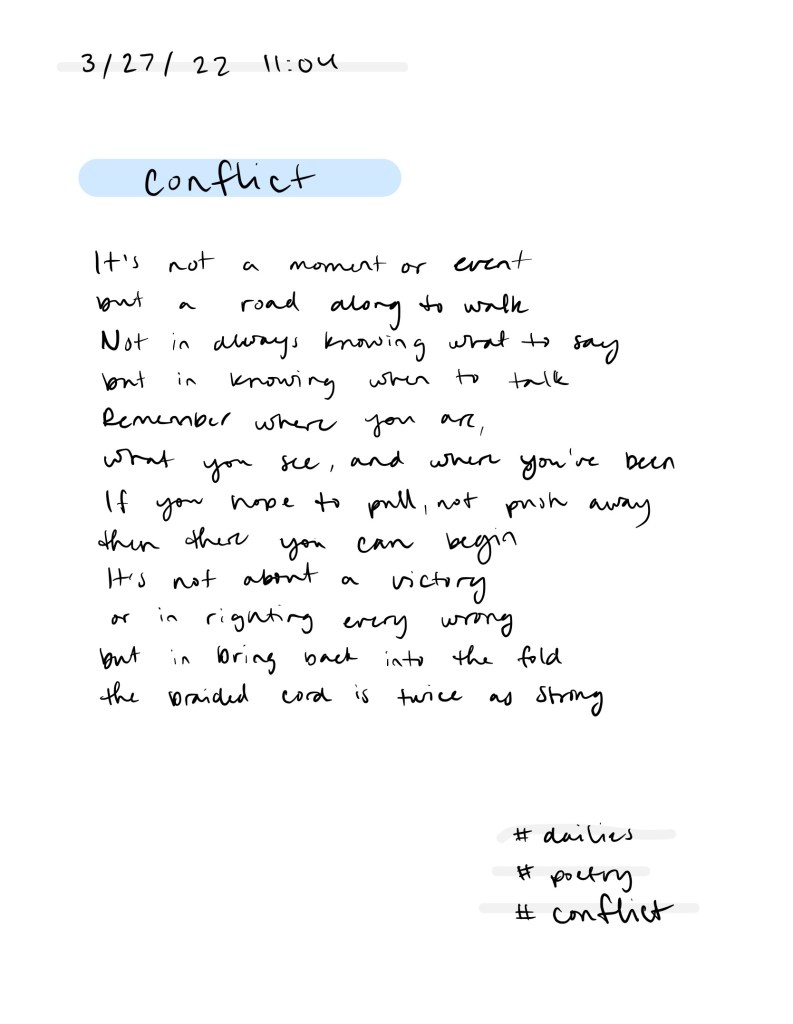 3/27/22 11:04
Conflict
It's not a moment or event
but a road along to walk
Not in always knowing what to say
but in knowing when to talk
Remember where you are,
what you see, and where you've been
If you hope to pull, not push away
then there you can begin
It's not about a victory
or in righting every wrong
but in bring back into the fold
the braided cord is twice as strong
# dailies
# poetry
# conflict